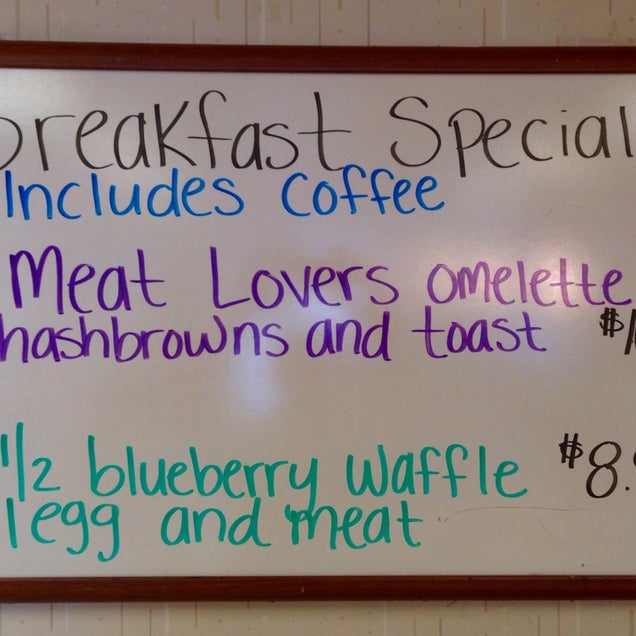 breakfast Special
Includes Coffee
Meat Lovers omelette
hashbrowns and toast
1/2 blueberry Waffle $8.
1 egg and meat